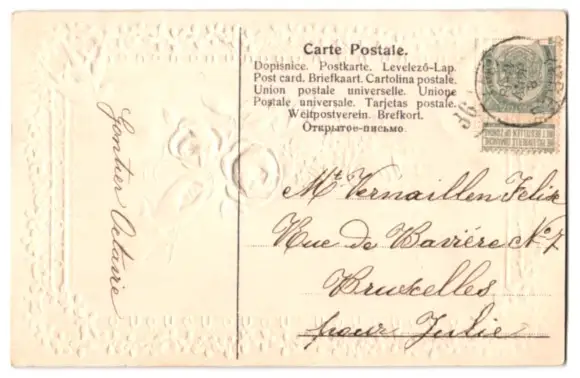 Carte Postale.
Dopisnice. Postkarte. Levelező-Lap.
Post card. Briefkaart. Cartolina postale.
Union postale universelle. Unione
Postale universale. Tarjetas postale.
Weltpostverein. Brefkort.
Открытое-письмо.
Gontier Octavie
Mr Vernaillen Felix
Rue de Bavière No 7
Bruxelles
pour Julie
NE PAS LIVRER LE DIMANCHE
NIET BESTELLEN OP ZONDAG